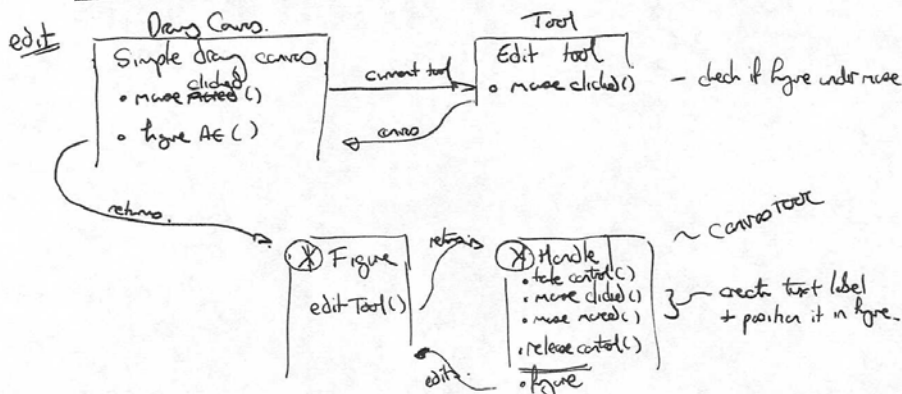 edit
Drawing Canvas.
Simple drawing canvas
clicked
• mouse moved ()
• figure At ()
current tool
canvas
Tool
Edit tool
• mouse clicked()
- check if figure under mouse
returns.
X Figure
edit Tool()
returns
X Handle
• take control()
• mouse clicked()
• mouse moved()
• release control()
• figure
edits.
~ canvas Tool
~ create text label
+ position it in figure.